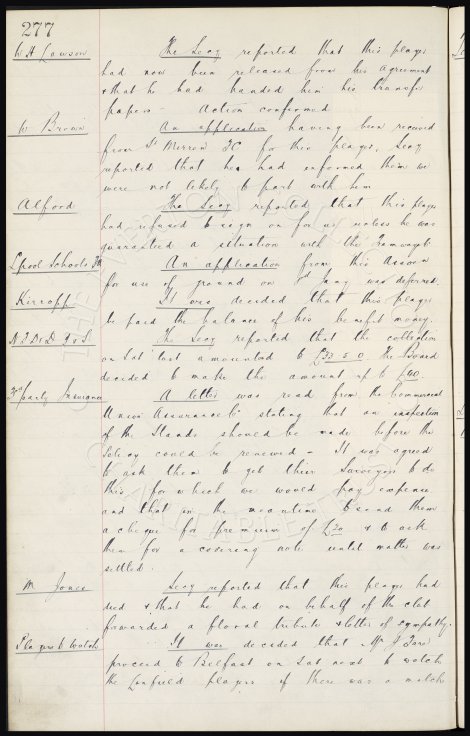 277
W. H. Lawson The Secy reported that this player
had now been released from his agreement
& that he had handed him his transfer
papers - Action confirmed
W Brown An application having been received
from St Mirren FC for this player, Secy
reported that he had informed them we
were not likely to part with him
Alford The Secy reported that this player
had refused to sign on for us unless he was
guaranteed a situation with the Tramways
Lpool Schools FA An application from this Assocn
for use of ground on 1st Jany was deferred.
Kirsopp It was decided that this player
be paid the balance of his benefit money.
The Secy reported that the collection
on Sat last amounted to £33. 5. 0. The Board
decided to make the amount up to £40
3rd party Insurance A letter was read from the Commercial
Union Assurance Co stating that an inspection
of the Stands should be made before the
Policy could be renewed - It was agreed
to ask them to get their Surveyors to do
this for which we would pay expenses
and that in the meantime to send them
a cheque for premium of £20 & to ask
them for a covering note until matter was
settled.
M Jones Secy reported that this player had
died & that he had on behalf of the club
forwarded a floral tribute & letter of sympathy.
Players to Watch It was decided that Mr J
proceed to Belfast on Sat next to watch
the Linfield players if there was a match